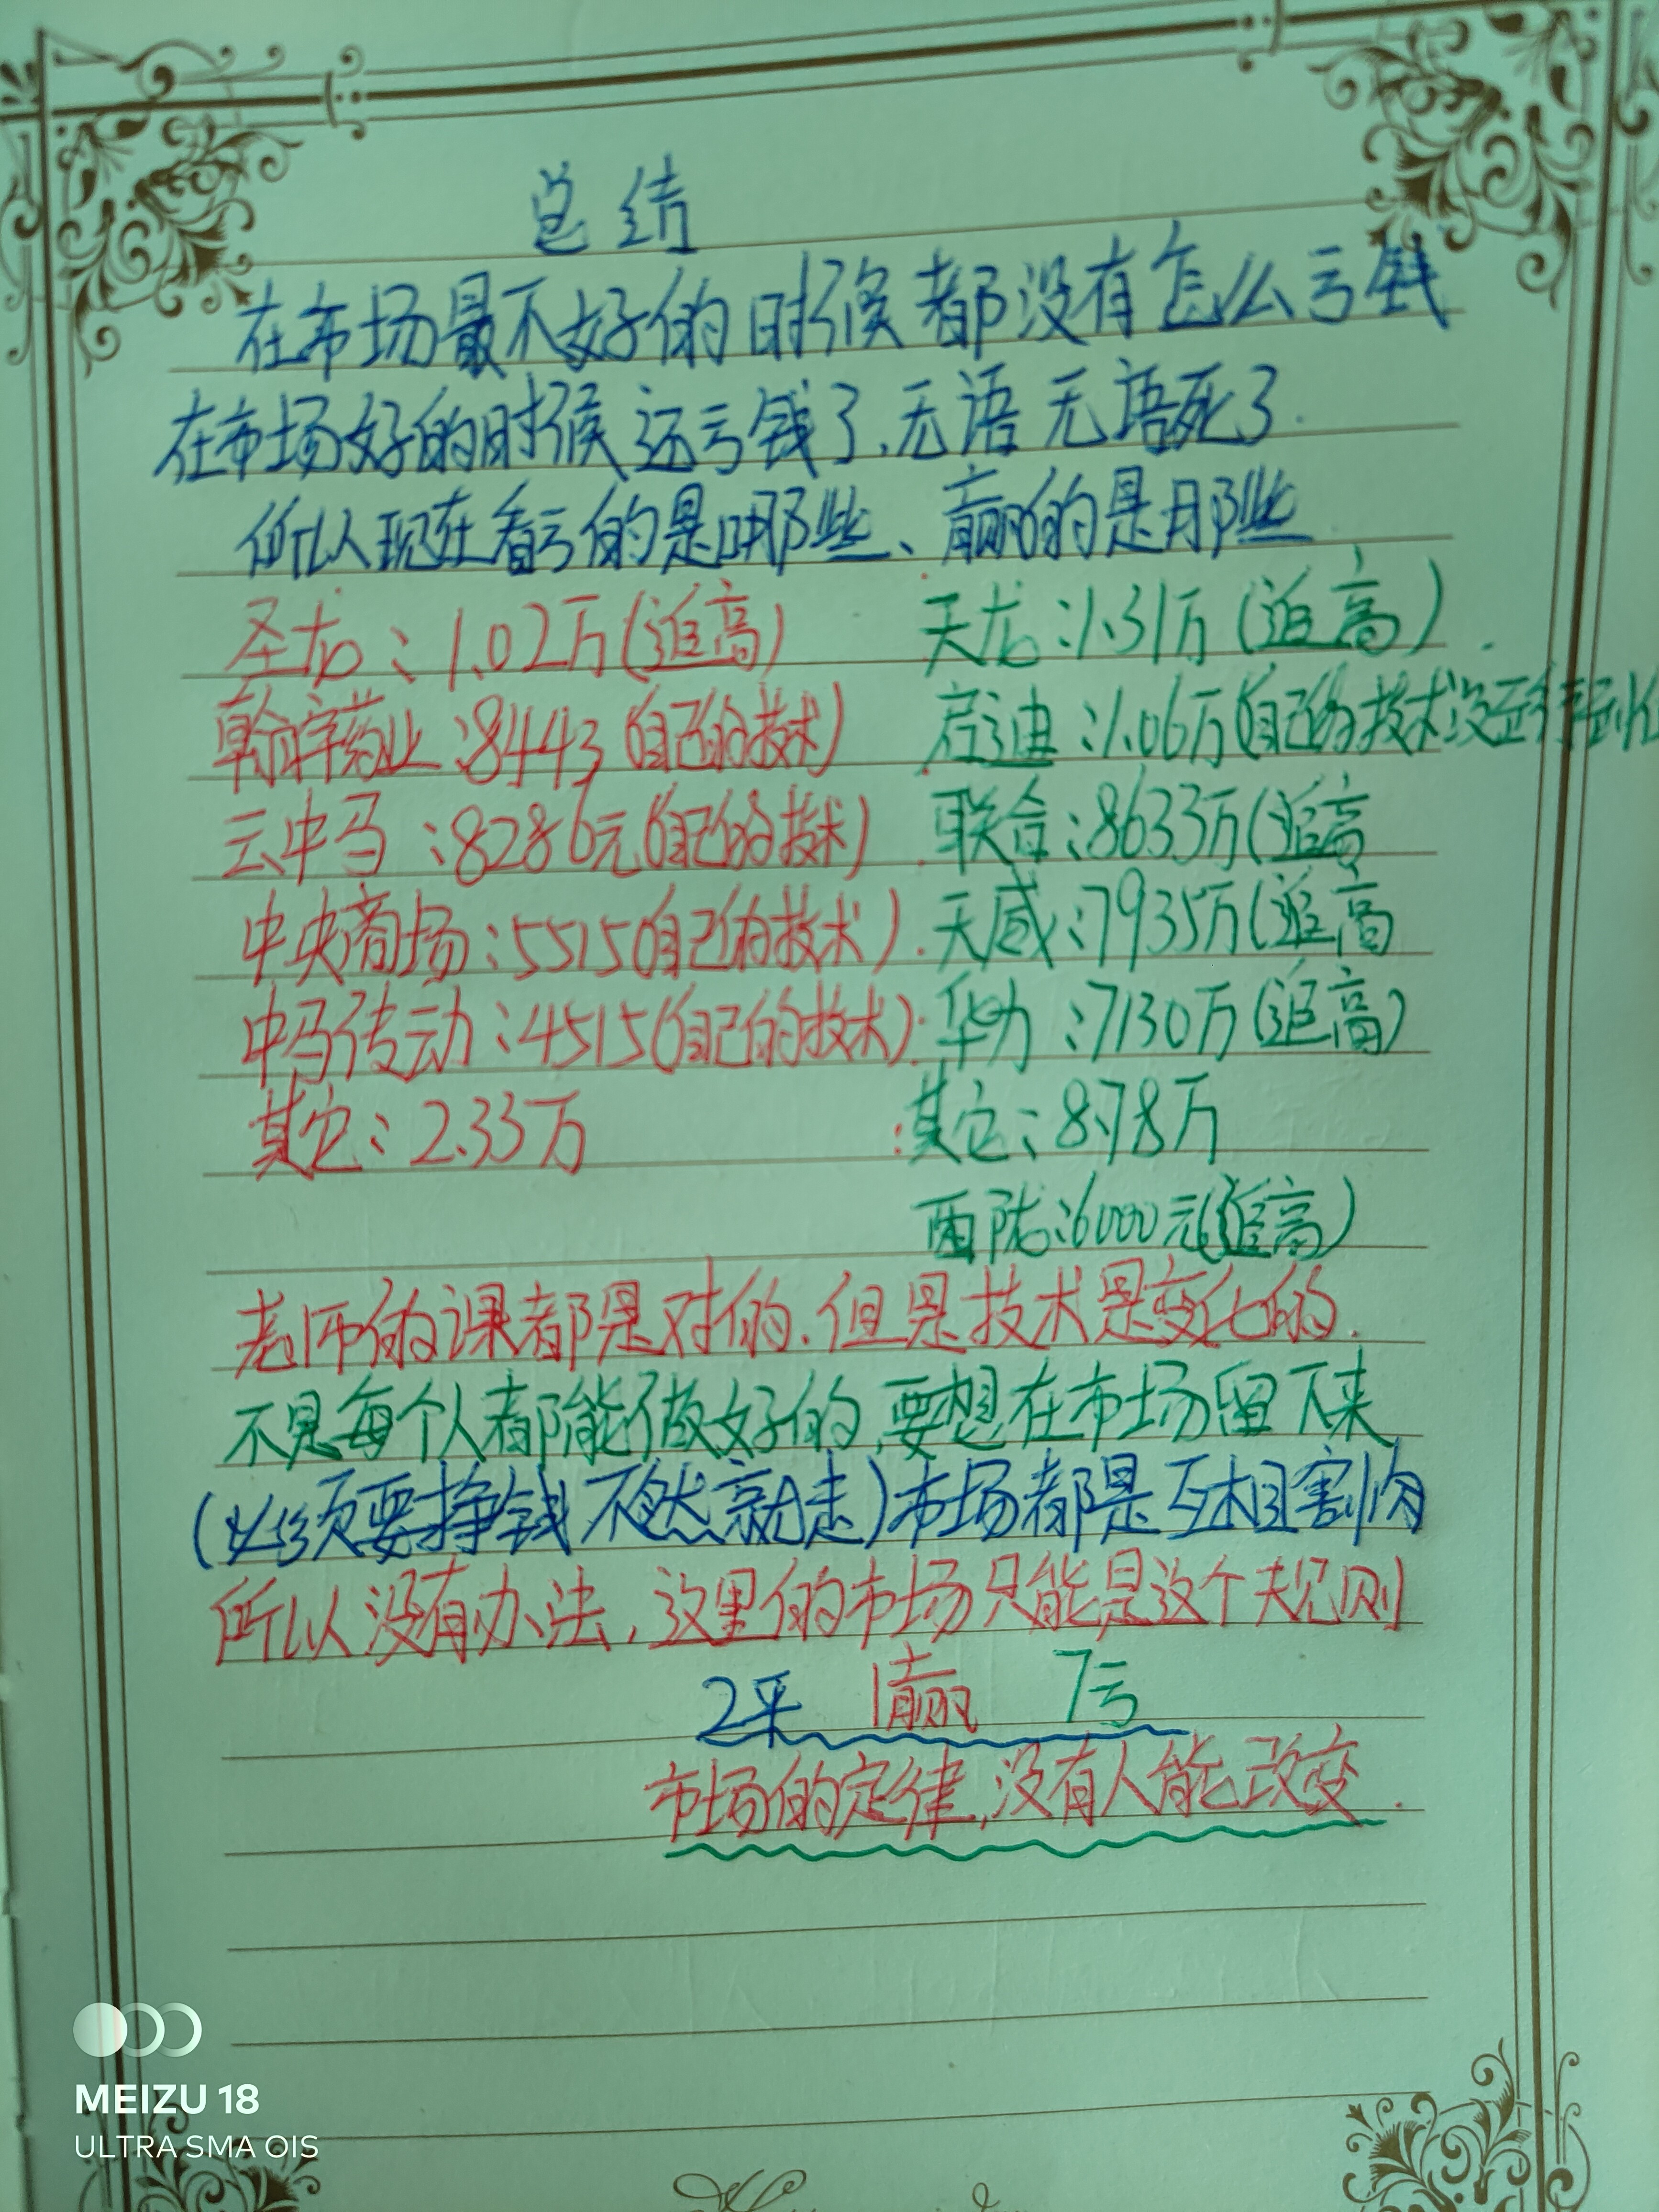 总结
在市场最不好的时候都没有怎么亏钱
在市场好的时候还亏钱了.无语无语死了.
所以现在看亏的是哪些、赢的是那些
圣龙:1.02万(追高) 天龙:1.31万(追高).
翰宇药业:8443(自己的技术) 启迪:1.06万(自己的技术没
云中马:8286元(自己的技术) 联合:8633万(追高
中央商场:5515(自己的技术). 天威:7935万(追高
中马传动:4515(自己的技术). 华力:7130万(追高)
其它:2.33万 其它:8.78万
西陇:6000元(追高)
老师的课都是对的.但是技术是变化的.
不是每个人都能做好的,要想在市场留下来
(必须要挣钱不然就走)市场都是互相割肉
所以没有办法,这里的市场只能是这个规则
2平 1赢 7亏
市场的定律,没有人能改变.
MEIZU 18
ULTRA SMA OIS